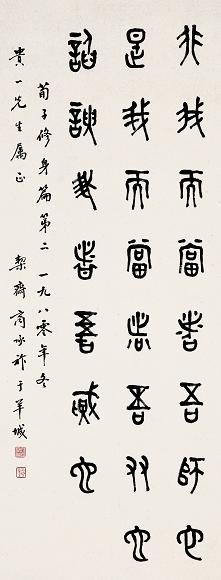 非我而當者吾師也
是我而當者吾友也
諂諛我者吾賊也
荀子修身篇第二 一九八零年冬
貴一先生属正 栔齋商承祚于羊城